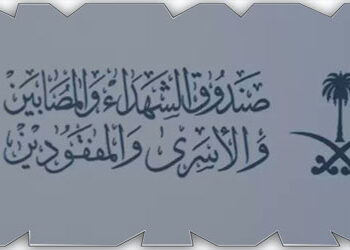 صندوق الشهداء والمصابين
والأسرى والمفقودين